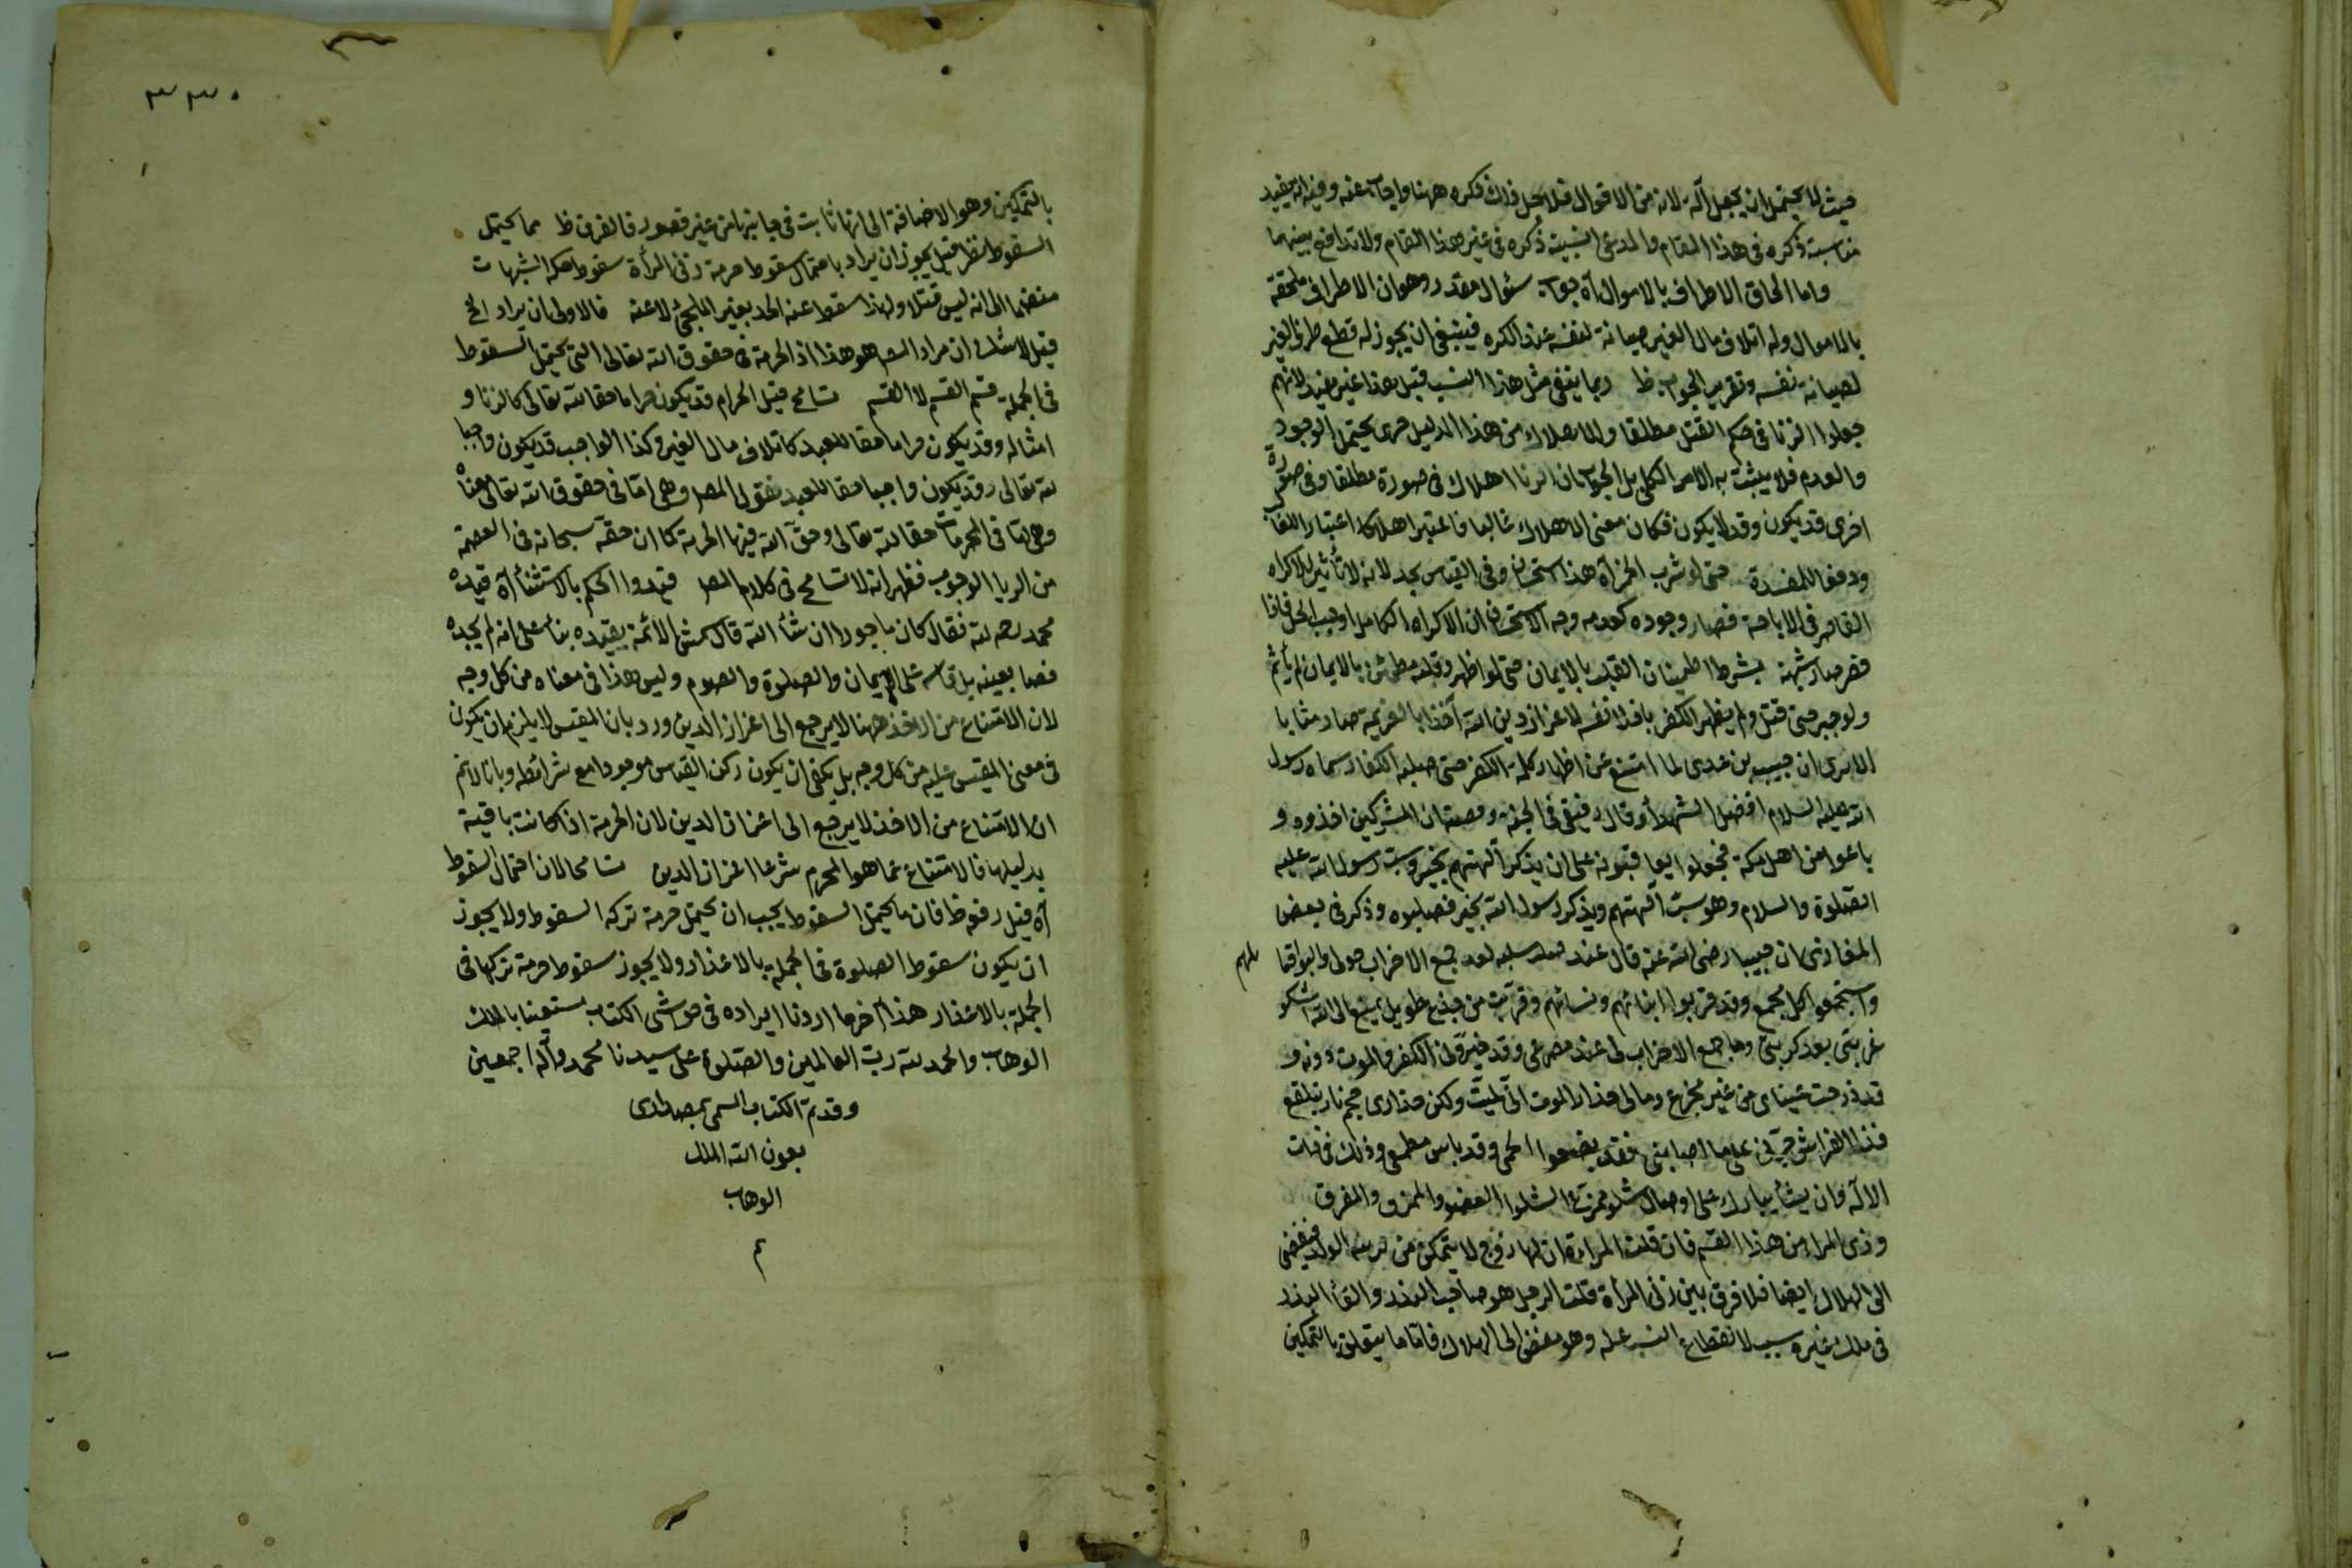 حيث لا يحتمل ان يجعل آلة لانه من الاقوال فلاجل ذلك ذكره ههنا واجاب عنه وفيه انه يفيد
مناسبة ذكره في هذا المقام والمدعى انسبية ذكره في غير هذا المقام ولا تدافع بينهما
واما الحاق الاطراف بالاموال آه جواب سئوال مقدر وهو ان الاطراف ملحقة
بالاموال وله اتلاف مال الغير صيانة لنفسه عند الكره فينبغي ان يجوز له قطع طرف الغير
لصيانة نفسه وتقرير الجواب ظ وبما ينفى مثل هذا النسب قيل هذا غير مفيد لانهم
جعلوا الزنا في حكم القتل مطلقا والاهلاك من هذا الدليل حرى يحتمل الوجود
والعدم فلا يثبت به الامر الكلي بل الجواب ان الزنا اهلاك في صورة مطلقا وفي صورة
اخرى قد يكون وقد لا يكون فكان معنى الاهلاك غالبا فاعتبر اهلاكا اعتبارا للغالب
ودفعا للمفسدة حتى لو شرب الخمر آه هذا استحسان وفي القياس يحد لانه لا تأثير للاكراه
القاصر في الاباحة فصار وجوده كعدمه وجه الاستحسان ان الاكراه الكامل اوجب الحل فاذا
قصر صار شبهة بشرط اطمينان القلب بالايمان حتى لو اظهر وقلبه مطمئن بالايمان لم يأثم
ولو صبر حتى قتل ولم يظهر الكفر باذلا نفسه لاعزاز دين الله آخذا بالعزيمة صار مثابا
الا يرى ان خبيب بن عدي لما امتنع عن اظهار كلمة الكفر حتى صلبه الكفار سماه رسول
الله عليه السلام افضل الشهدأ وقال رفيقي في الجنة وقصته ان المشركين اخذوه و
باعوا من اهل مكة فجعلوا يعاقبونه على ان يذكر آلهتهم بخير وسب رسول الله عليه
الصلوة والسلام وهو سب آلهتهم ويذكر رسول الله بخير فصلبوه وذكر في بعض
المغازى ان خبيبا رضى الله عنه قال عند صلبه لقد جمع الاحزاب حولي والبوا قبائلهم
واستجمعوا كل مجمع وقد قربوا ابنائهم ونسائهم وقربت من جذع طويل ممنع الى الله اشكو
غربتي بعد كربتي وما جمع الاحزاب لي عند مصرعي وقد خيروني الكفر والموت دونه و
قد ذرفت عيناى من غير مجزع وما لي حذار الموت اني لميت ولكن حذارى حجم نار تلفع
فذا العرش صبرني على ما اصابني فقد بضعوا لحمى وقد ياس مطمعي وذلك في ذات
الاله وان يشأ يبارك على اوصال شلو ممزع الشلو العضو والممزق والمفرق
وزنى المرأة من هذا القسم فان قلت المرأة ان لها زوج لا يتمكن من تربية الولد فيفضى
الى الهلاك ايضا فلا فرق بين زنى المرأة قلت الرجل هو صاحب البذر والقأ البذر
في ملك غيره سبب لانقطاع النسب عنه وهو مفض الى الهلاك فاما ما يتعلق بالتمكين
٣٣٠
بالتمكين وهو الاضافة الى انها ثابت في جانبها من غير قصور فالفرق ظ مما يحتمل
السقوط نظر قيل يجوز ان يراد باحتمال سقوط حرمة زنى المرأة سقوط حكمه الشبهات
منضما الى انه ليس قتلا ولهذا سقط عنه الحد بغير الملجئ لا عنه فالاولى ان يراد الخ
قيل لا شك ان مراد المص هو هذا اذ الحرمة في حقوق الله تعالى التي يحتمل السقوط
في الجملة قسم القسم لا القسم تسامح قيل الحرام قد يكون حراما حقا لله تعالى كالزنا و
امثاله وقد يكون حراما حقا للعبد كاتلاف مال الغير وكذا الواجب قد يكون واجبا
لله تعالى وقد يكون واجبا حقا للعبد فقول المص وهي اما في حقوق الله تعالى معناه
وهي اما في المحرمات حقا لله تعالى وحق الله فيها الحرمة كما ان حقه سبحانه في العصمة
من الربا الوجوب فظهر انه لا تسامح في كلام المص قيدوا الحكم بالاستثنأ آه قيده
محمد رحمه الله فقال كان ماجورا ان شأ الله قال شمس الأئمة يقيده بنأ على انه لم يجده
نصا بعينه بل قاسه على الايمان والصلوة والصوم وليس هذا في معناه من كل وجه
لان الامتناع من الاخذ ههنا لا يرجع الى اعزاز الدين ورد بان المقيس لا يلزم ان يكون
في معنى المقيس عليه من كل وجه بل يكفي ان يكون ركن القياس موجودا مع شرائطه وبانا لا نم
ان الامتناع من الاخذ لا يرجع الى اعزاز الدين لان الحرمة اذا كانت باقية
بدليلها فالامتناع عما هو المحرم شرعا اعزاز الدين تسامحا لان احتمال السقوط
آه قيل رفوظ فان ما يحتمل السقوط يجب ان يحتمل حرمة تركه السقوط ولا يجوز
ان يكون سقوط الصلوة في الجملة بالاعذار ولا يجوز سقوط حرمة تركها في
الجملة بالاعذار هذا آخر ما اردنا ايراده في حواشى الكتاب مستعينا بالملك
الوهاب والحمد لله رب العالمين والصلوة على سيدنا محمد وآله اجمعين
وقد تم الكتاب المسمى بصدارى
بعون الله الملك
الوهاب
م